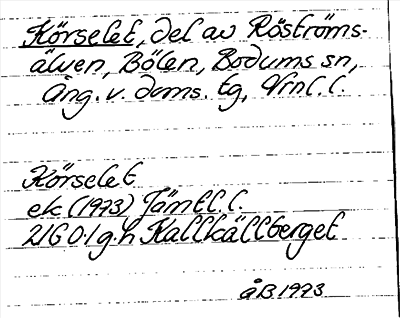 Körselet, del av Röströms-
älven, Bölen, Bodums sn,
Ång. v. doms. tg, Vrnl. l.
Körselet
ek (1973) Jämtl. l.
21G 0-1 g.h Kallkällberget
ÅB 1973